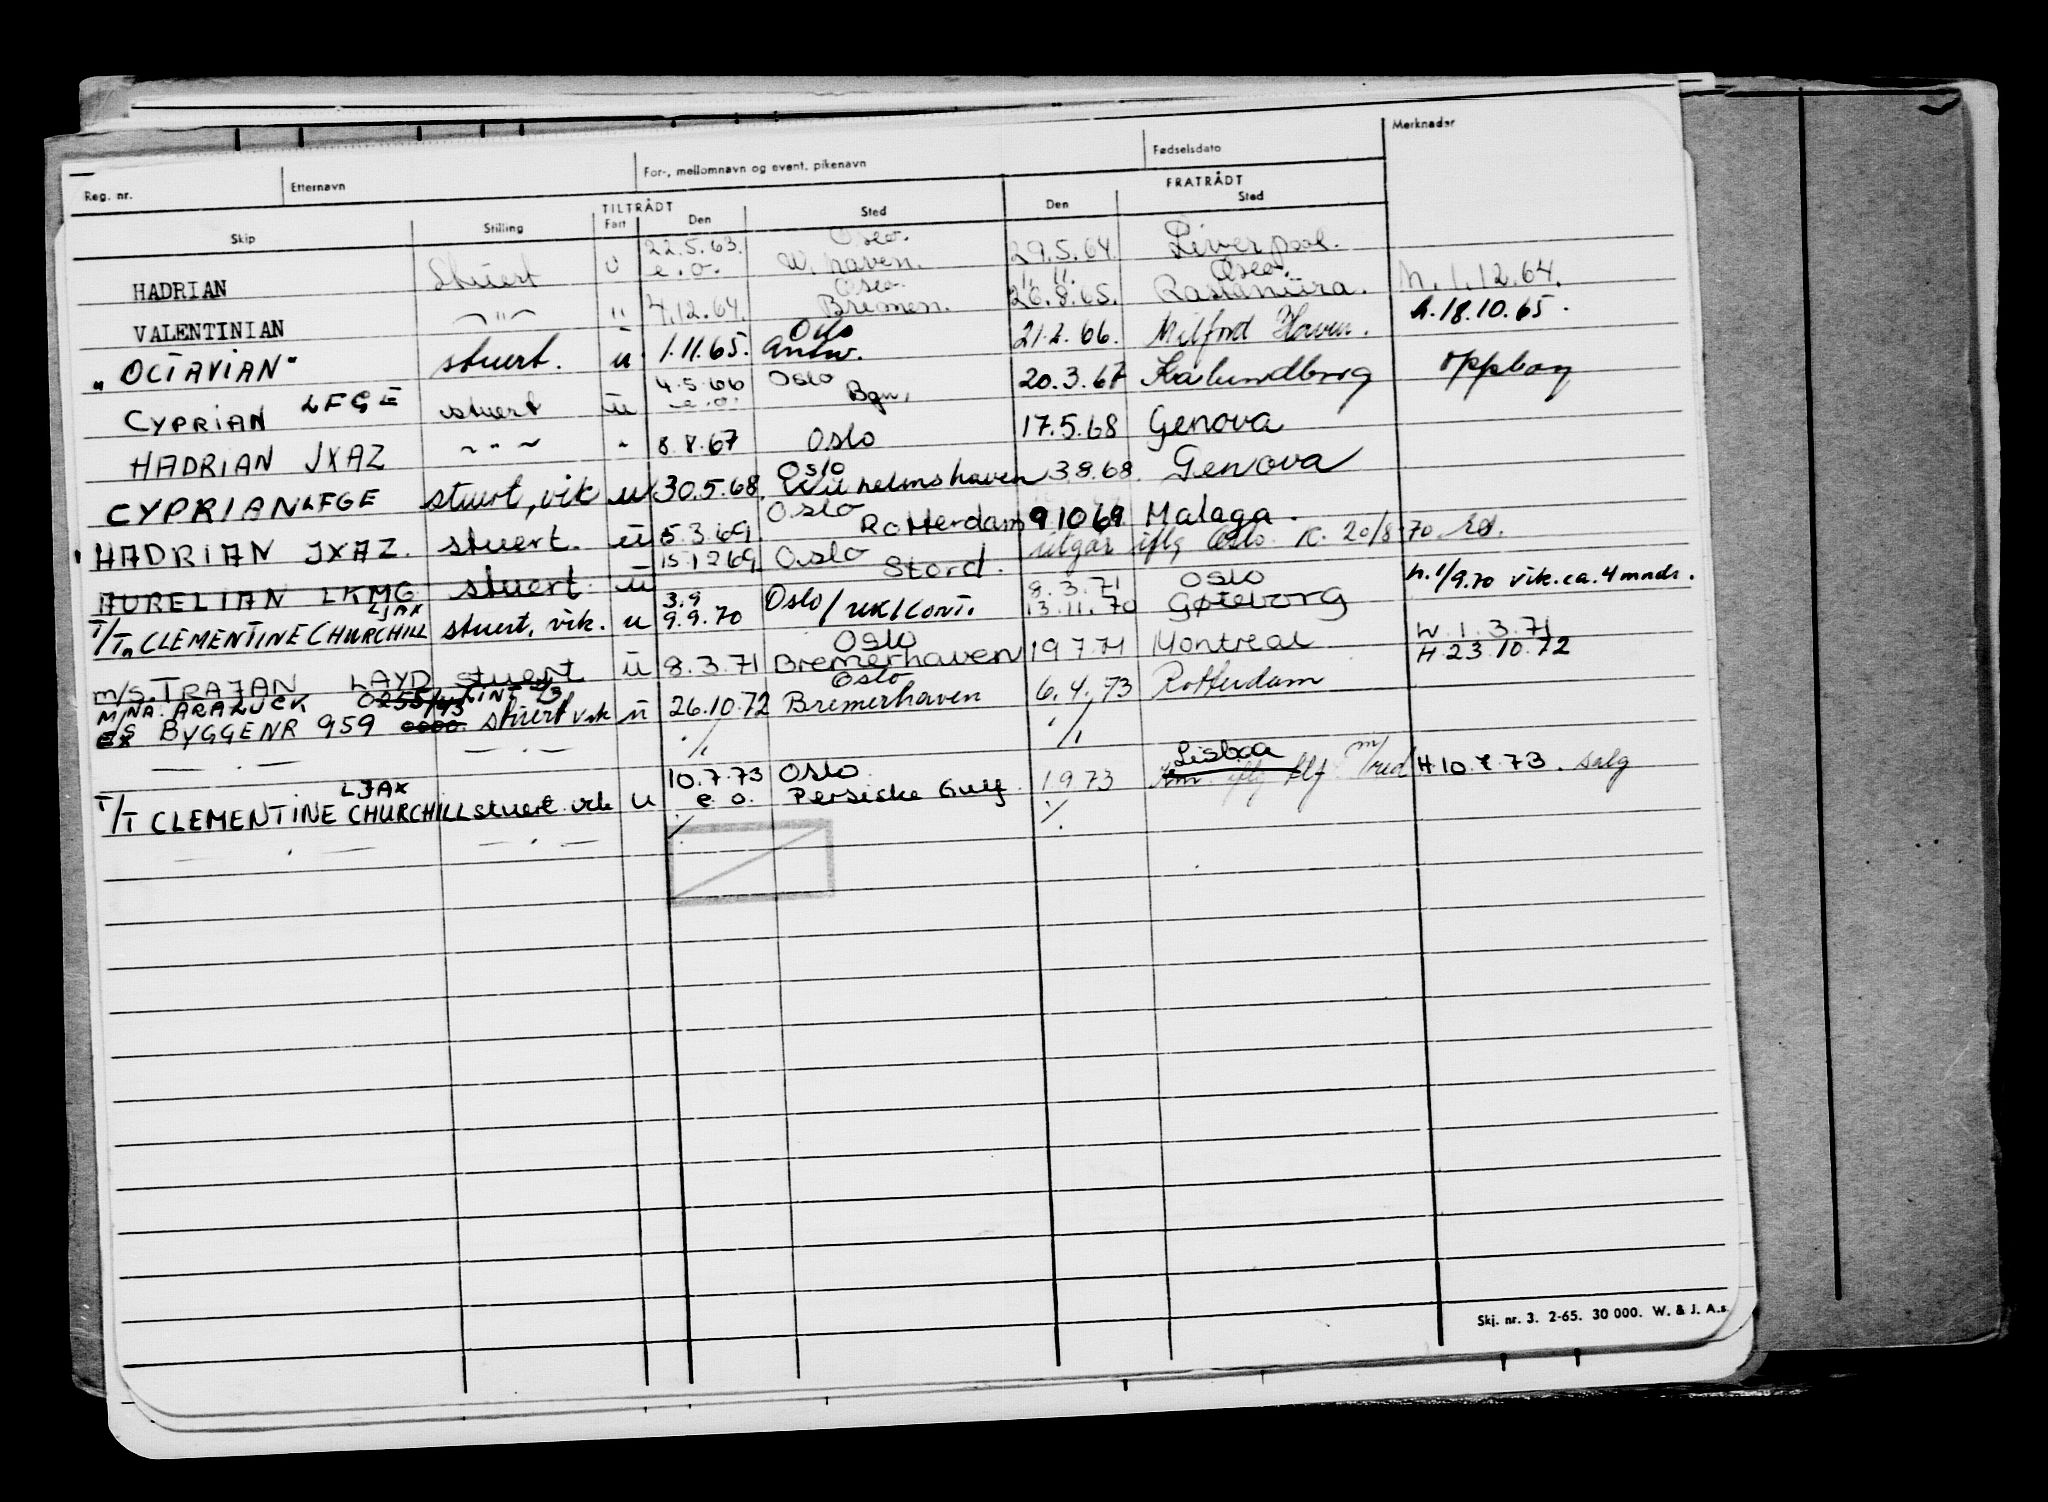 Reg. nr. Etternavn For-, mellomnavn og event. pikenavn Fødselsdato Merknader
TILTRÅDT FRATRÅDT
Skip Stilling Fart Den Sted Den Sted
22.5.63. Oslo.
HADRIAN Stuert u e.o. W. haven. 29.5.64. Liverpool.
Oslo. " " Oslo.
VALENTINIAN ~"~ " 4.12.64. Bremen. 26.8.65. Rastanura. h. 1.12.64.
Oslo
"OCTAVIAN" stuert. u 1.11.65. Antw. 21.2.66. Milford Haven. h.18.10.65.
4.5.66 Oslo
CYPRIAN LFGE stuert u e.o. Bgn. 20.3.67 Kalundborg oppbag
HADRIAN JXAZ ~"~ " 8.8.67 Oslo 17.5.68 Genova
Oslo
CYPRIAN LFGE stuert, vik u 30.5.68. Wilhelmshaven 3.8.68. Genova
Oslo
HADRIAN JXAZ. stuert. u 5.3.69. Rotterdam 9 10 69 Malaga.
15.12.69. Oslo utgår iflg Oslo. K. 20/8-70
AURELIAN LKMG stuert. u Stord.
LJAX 3.9 8.3.71 Oslo
T/T CLEMENTINE CHURCHILL stuert, vik. u 9.9.70 Oslo/UK/Cont. 13.11.70 Gøteborg h. 1/9.70 vik. ca. 4 mndr.
Oslo
m/s. TRAJAN LAYD stuert u 8.3.71 Bremerhaven 19 7 71 Montreal H. 1.3.71
M/S NA. ARALUCK 0255/43 LINE Oslo H. 23.10.72
EX BYGGENR 959 stuert vik u 26.10.72 Bremerhaven 6.4.73 Rotterdam
— . — — . — ./. ./.
LJAX 10.7.73 Oslo Lisboa
T/T CLEMENTINE CHURCHILL stuert vik u e.o. Persiske Gulf 1973 iflg tlf m/red H 10.7.73. salg
— . — — . — ./. ./.
Skj. nr. 3. 2-65. 30 000. W. & J. A.s.